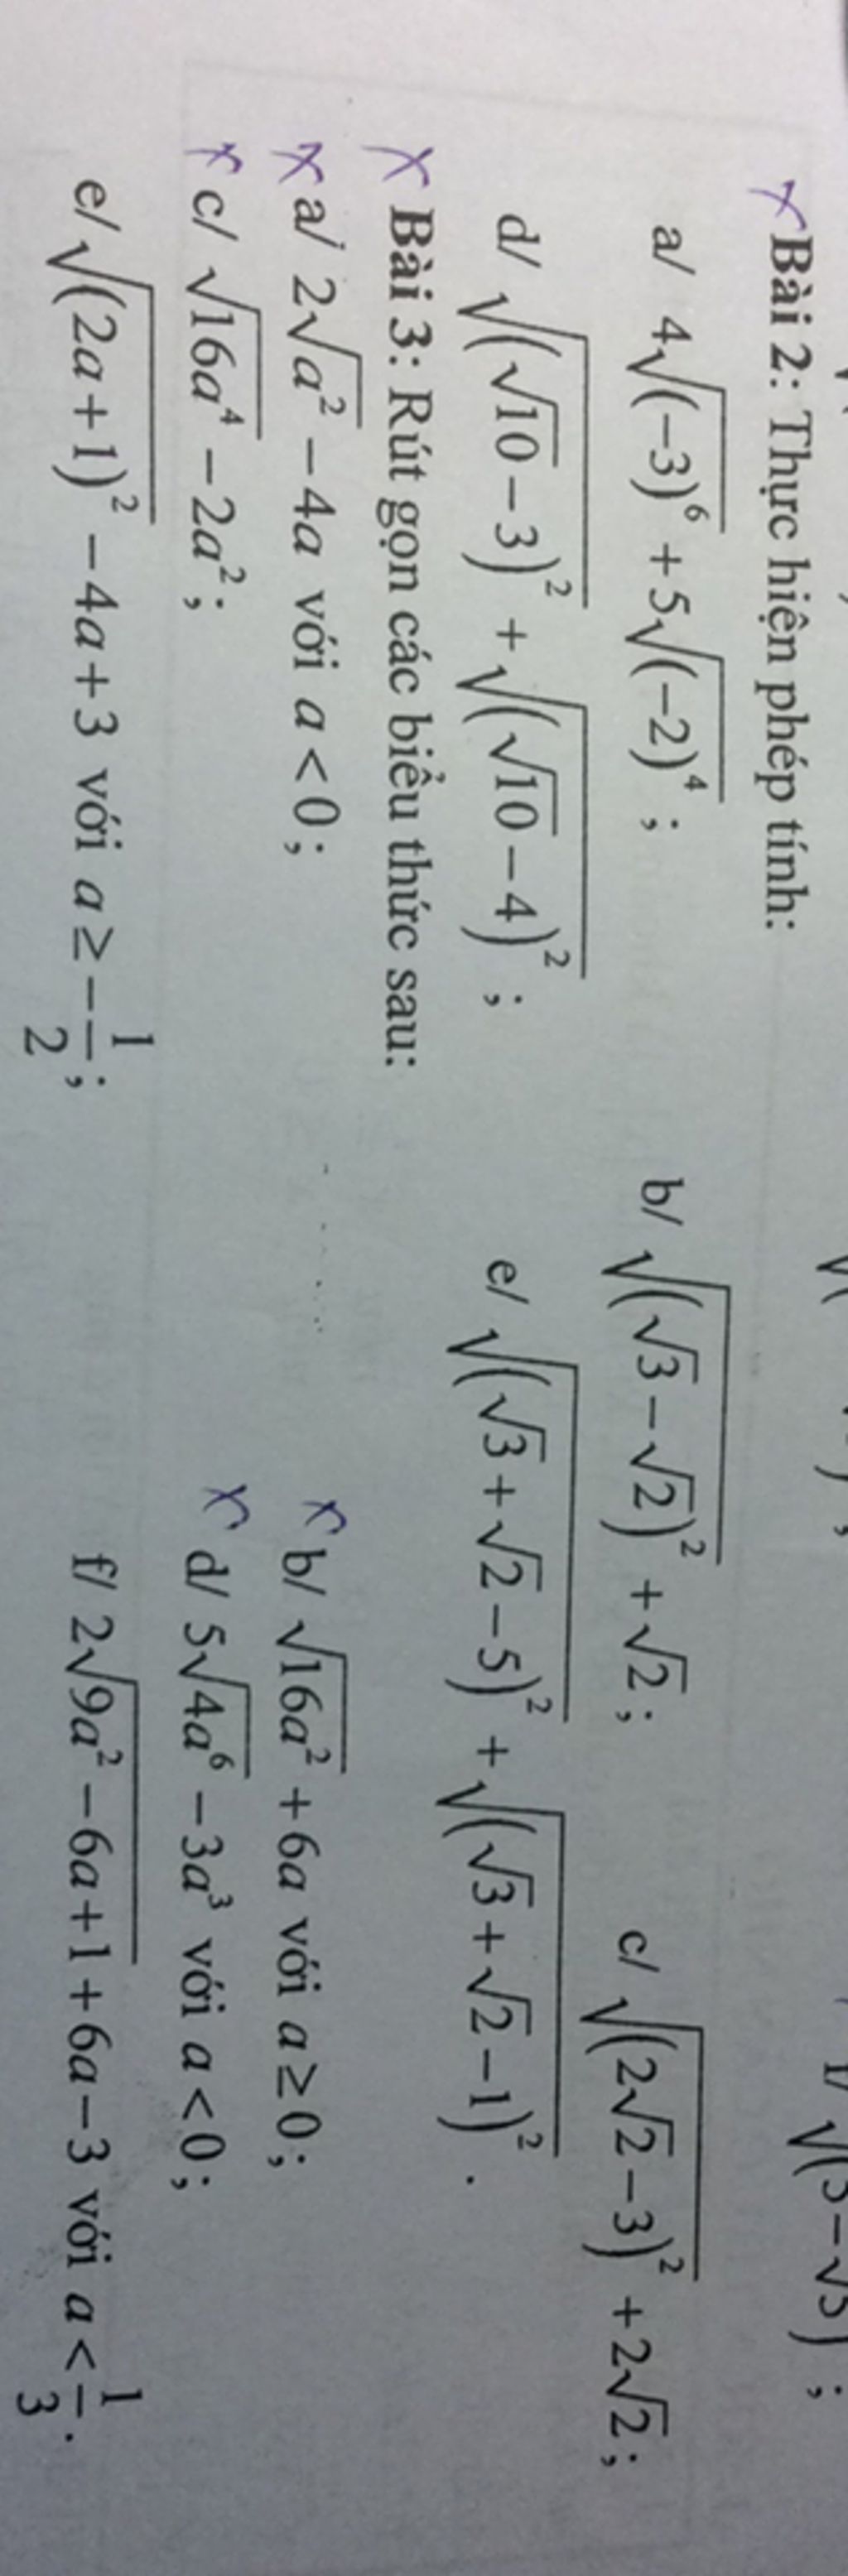 Bài 2: Thực hiện phép tính:
a/ 4√(-3)⁶ + 5√(-2)⁴ ; b/ √(√3 - √2)² + √2 ; c/ √(2√2 - 3)² + 2√2 ;
d/ √(√10 - 3)² + √(√10 - 4)² ; e/ √(√3 + √2 - 5)² + √(√3 + √2 - 1)² .
Bài 3: Rút gọn các biểu thức sau:
a/ 2√a² - 4a với a < 0 ; b/ √16a² + 6a với a ≥ 0 ;
c/ √16a⁴ - 2a² ; d/ 5√4a⁶ - 3a³ với a < 0 ;
e/ √(2a+1)² - 4a + 3 với a ≥ -1/2 ; f/ 2√9a² - 6a + 1 + 6a - 3 với a < 1/3 .